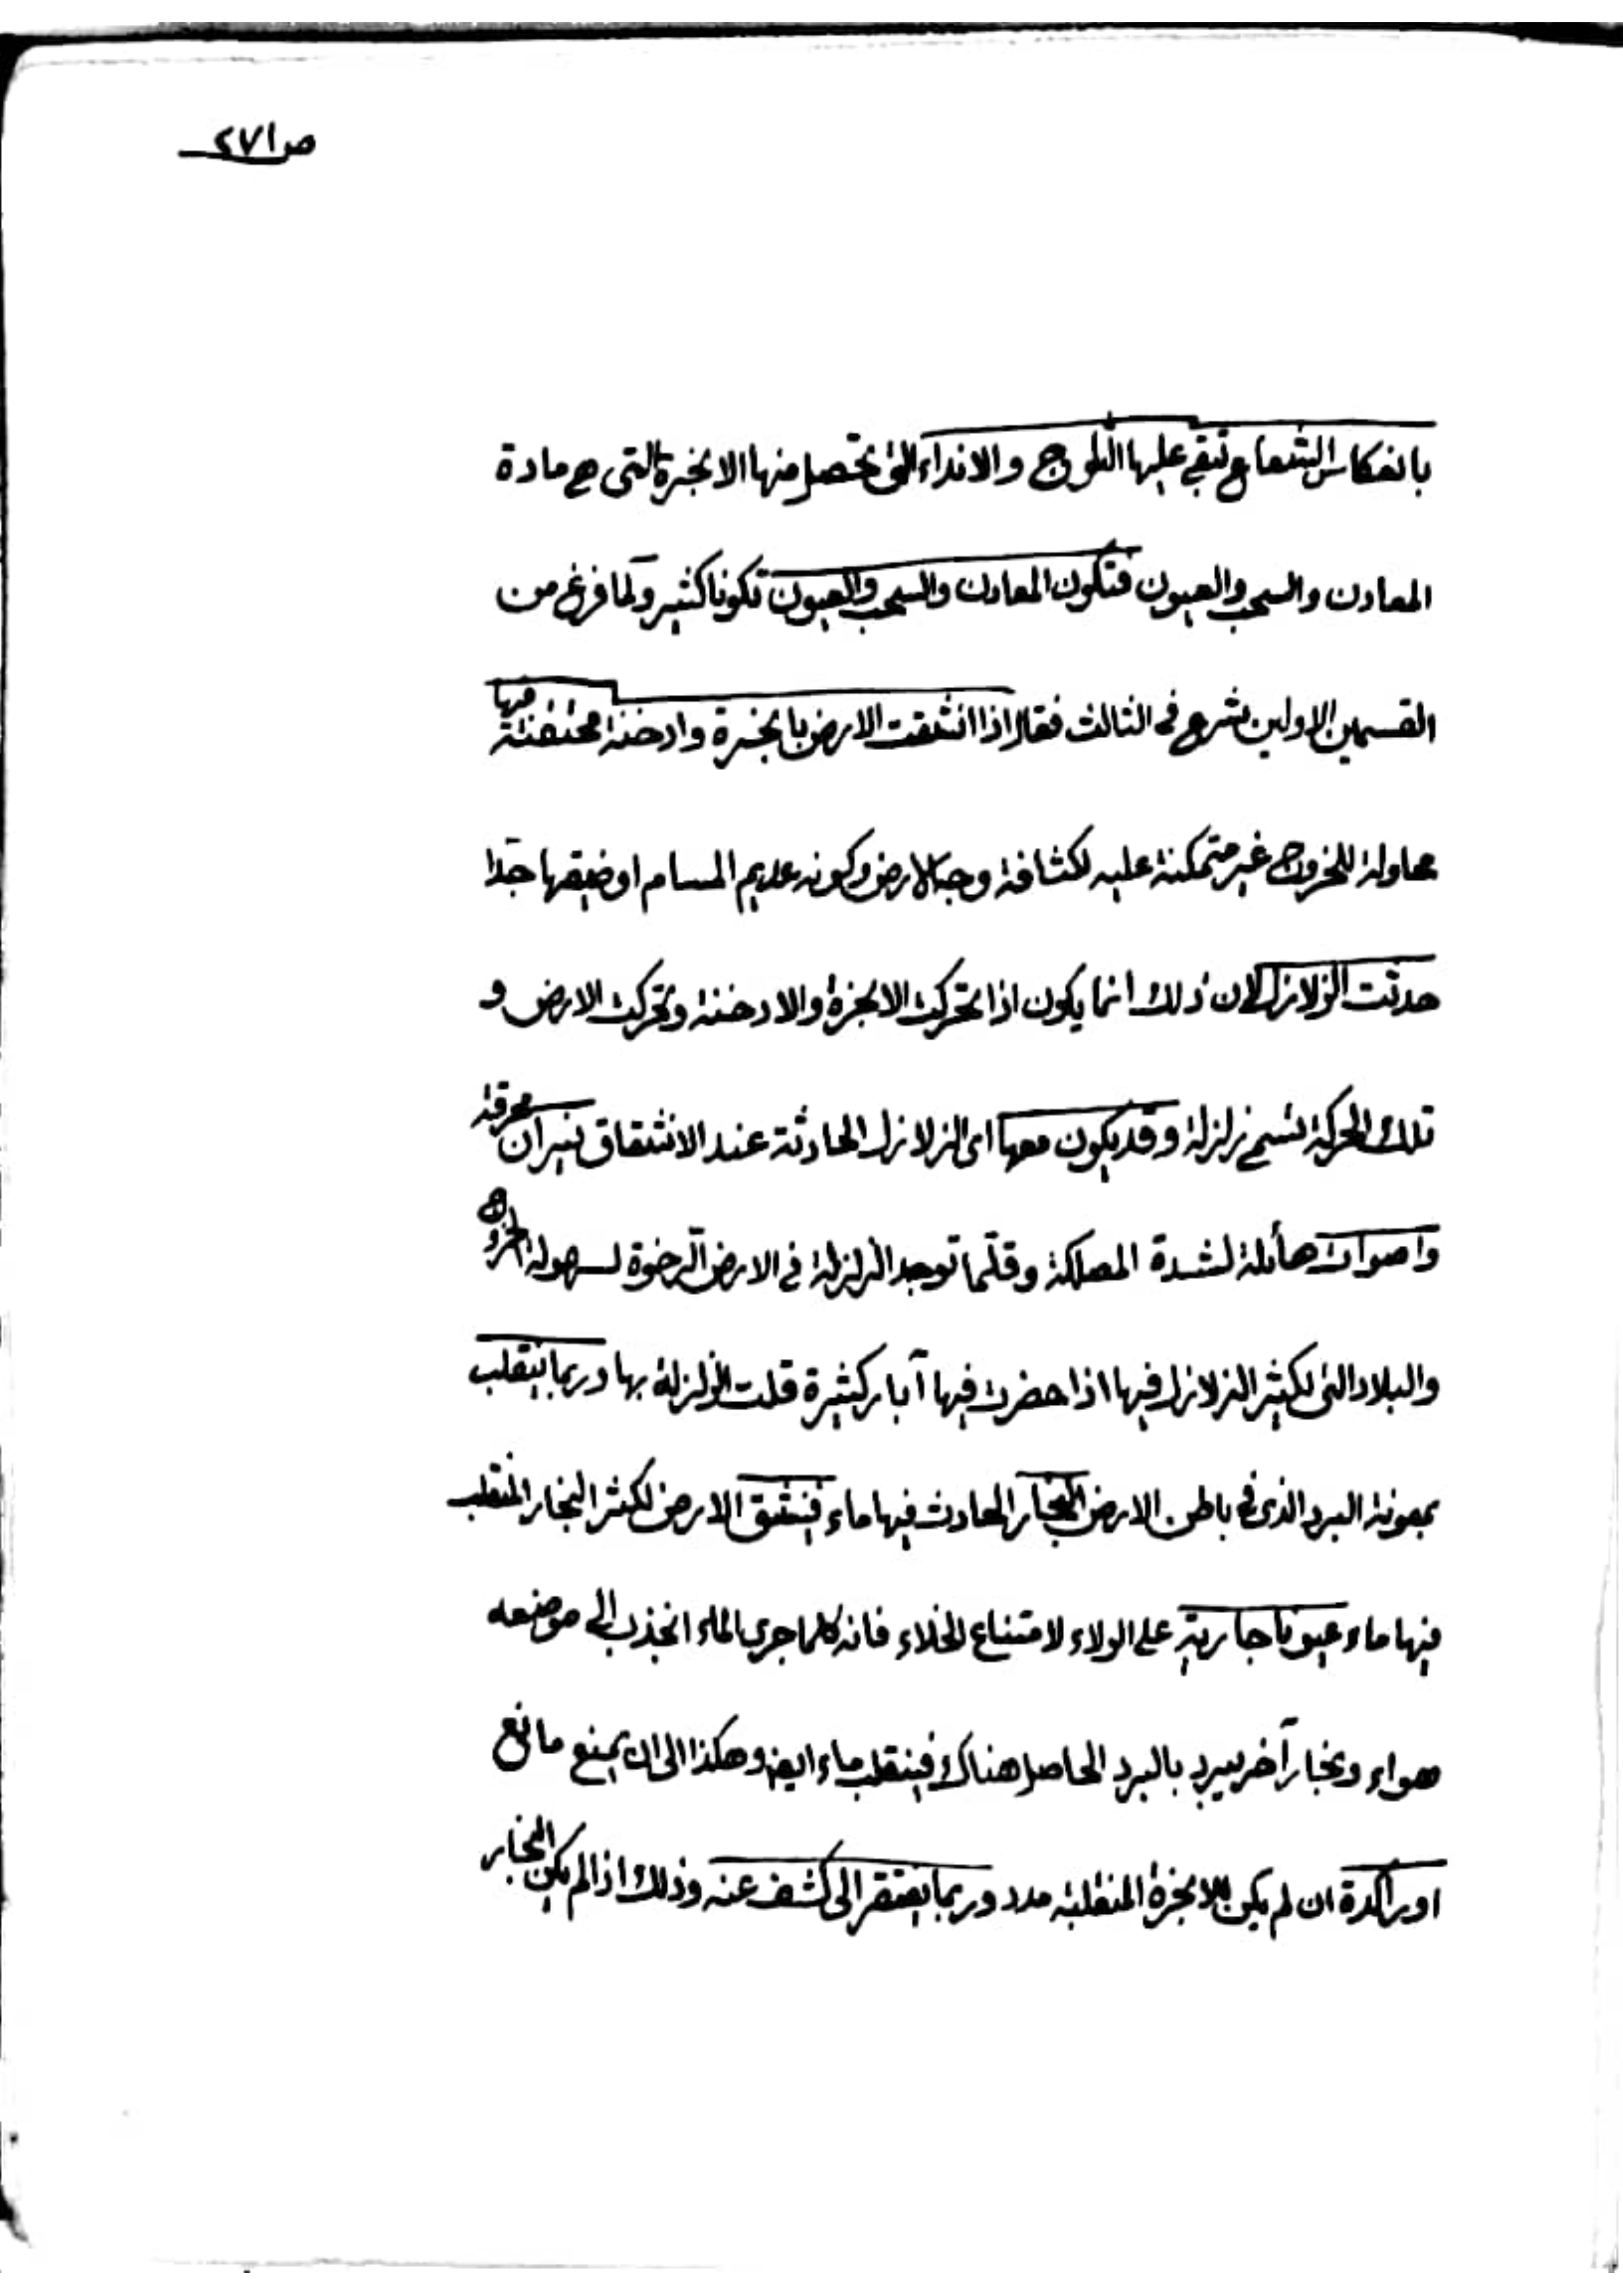 ص٢٧١
بانعكاس الشعاع تبقى عليها الثلوج والانداء التى تحصل منها الابخرة التى هى مادة
المعادن والسحب والعيون فتكون المعادن والسحب والعيون تكونا كثير ولما فرغ من
القسمين الاولين شرع فى الثالث فقال اذا انشقت الارض بابخرة وادخنة محتقنة فيها
محاولة للخروج غير متمكنة عليه لكثافة وجه الارض وكونه عديم المسام او ضيقها جدا
حدثت الزلازل لان ذلك انما يكون اذا تحركت الابخرة والادخنة وتحركت الارض و
تلك الحركة تسمى زلزلة وقد يكون معها اى الزلازل الحادثة عند الانشقاق نيران محرقة
واصوات هائلة لشدة المصاكة وقلّما توجد الزلزلة فى الارض الرخوة لسهولة الخروج
والبلاد التى تكثير الزلازل فيها اذا حضرت فيها آبار كثيرة قلت الزلزلة بها وربما ينقلب
بمعونة البرد الذى فى باطن الارض البخار الحادث فيها ماء فينشق الارض لكثر البخار المنقلب
فيها ماء عيونا جارية على الولاء لامتناع الخلاء فانه كلما جرى الماء انجذب الى موضعه
هواء وبخار آخر يبرد بالبرد الحاصل هناك فينقلب ماء ايضا وهكذا الى ان يمنع مانع
او راكدة ان لم يكن للابخرة المنقلبة مدد وربما يفتقر الى كشف عنه وذلك اذا لم يكن البخار